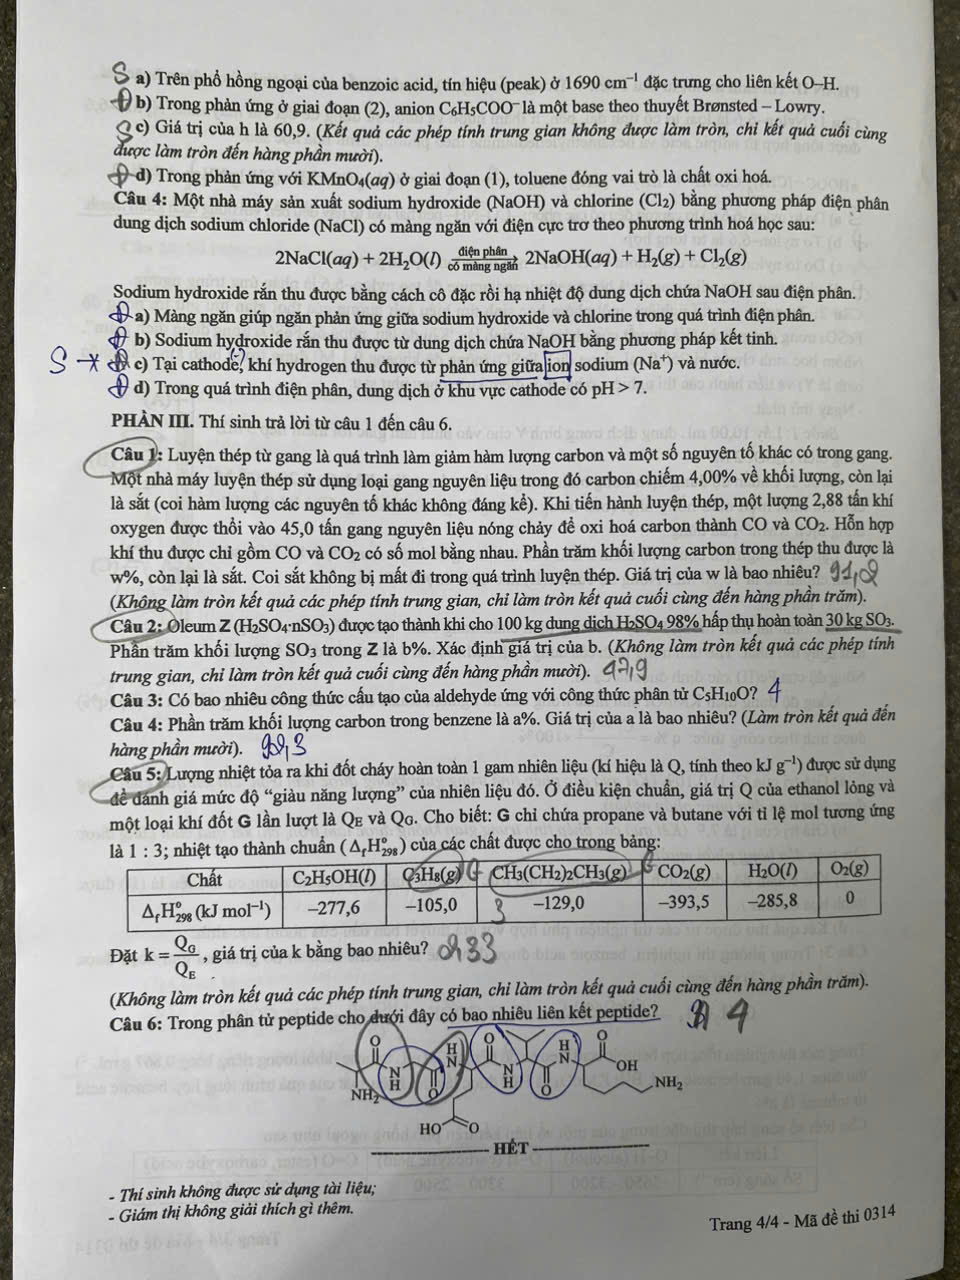 S a) Trên phổ hồng ngoại của benzoic acid, tín hiệu (peak) ở 1690 cm⁻¹ đặc trưng cho liên kết O–H.
Đ b) Trong phản ứng ở giai đoạn (2), anion C₆H₅COO⁻ là một base theo thuyết Brønsted – Lowry.
S c) Giá trị của h là 60,9. (Kết quả các phép tính trung gian không được làm tròn, chỉ kết quả cuối cùng
được làm tròn đến hàng phần mười).
Đ d) Trong phản ứng với KMnO₄(aq) ở giai đoạn (1), toluene đóng vai trò là chất oxi hoá.
Câu 4: Một nhà máy sản xuất sodium hydroxide (NaOH) và chlorine (Cl₂) bằng phương pháp điện phân
dung dịch sodium chloride (NaCl) có màng ngăn với điện cực trơ theo phương trình hoá học sau:
2NaCl(aq) + 2H₂O(l) điện phân có màng ngăn → 2NaOH(aq) + H₂(g) + Cl₂(g)
Sodium hydroxide rắn thu được bằng cách cô đặc rồi hạ nhiệt độ dung dịch chứa NaOH sau điện phân.
Đ a) Màng ngăn giúp ngăn phản ứng giữa sodium hydroxide và chlorine trong quá trình điện phân.
Đ b) Sodium hydroxide rắn thu được từ dung dịch chứa NaOH bằng phương pháp kết tinh.
S * c) Tại cathode, (-) khí hydrogen thu được từ phản ứng giữa ion sodium (Na⁺) và nước.
Đ d) Trong quá trình điện phân, dung dịch ở khu vực cathode có pH > 7.
PHẦN III. Thí sinh trả lời từ câu 1 đến câu 6.
Câu 1: Luyện thép từ gang là quá trình làm giảm hàm lượng carbon và một số nguyên tố khác có trong gang.
Một nhà máy luyện thép sử dụng loại gang nguyên liệu trong đó carbon chiếm 4,00% về khối lượng, còn lại
là sắt (coi hàm lượng các nguyên tố khác không đáng kể). Khi tiến hành luyện thép, một lượng 2,88 tấn khí
oxygen được thổi vào 45,0 tấn gang nguyên liệu nóng chảy để oxi hoá carbon thành CO và CO₂. Hỗn hợp
khí thu được chỉ gồm CO và CO₂ có số mol bằng nhau. Phần trăm khối lượng carbon trong thép thu được là
w%, còn lại là sắt. Coi sắt không bị mất đi trong quá trình luyện thép. Giá trị của w là bao nhiêu?
(Không làm tròn kết quả các phép tính trung gian, chỉ làm tròn kết quả cuối cùng đến hàng phần trăm).
Câu 2: Oleum Z (H₂SO₄·nSO₃) được tạo thành khi cho 100 kg dung dịch H₂SO₄ 98% hấp thụ hoàn toàn 30 kg SO₃.
Phần trăm khối lượng SO₃ trong Z là b%. Xác định giá trị của b. (Không làm tròn kết quả các phép tính
trung gian, chỉ làm tròn kết quả cuối cùng đến hàng phần mười). 17,9
Câu 3: Có bao nhiêu công thức cấu tạo của aldehyde ứng với công thức phân tử C₅H₁₀O? 4
Câu 4: Phần trăm khối lượng carbon trong benzene là a%. Giá trị của a là bao nhiêu? (Làm tròn kết quả đến
hàng phần mười). 92,3
Câu 5: Lượng nhiệt tỏa ra khi đốt cháy hoàn toàn 1 gam nhiên liệu (kí hiệu là Q, tính theo kJ g⁻¹) được sử dụng
để đánh giá mức độ “giàu năng lượng” của nhiên liệu đó. Ở điều kiện chuẩn, giá trị Q của ethanol lỏng và
một loại khí đốt G lần lượt là Q_E và Q_G. Cho biết: G chỉ chứa propane và butane với tỉ lệ mol tương ứng
là 1 : 3; nhiệt tạo thành chuẩn (Δ_fH°₂₉₈) của các chất được cho trong bảng:
Chất C₂H₅OH(l) C₃H₈(g) CH₃(CH₂)₂CH₃(g) CO₂(g) H₂O(l) O₂(g)
Δ_fH°₂₉₈ (kJ mol⁻¹) –277,6 –105,0 3 –129,0 –393,5 –285,8 0
Đặt k = Q_G/Q_E, giá trị của k bằng bao nhiêu?
(Không làm tròn kết quả các phép tính trung gian, chỉ làm tròn kết quả cuối cùng đến hàng phần trăm).
Câu 6: Trong phân tử peptide cho dưới đây có bao nhiêu liên kết peptide? 4
O H N O H N O
N H O N H O OH
NH₂ NH₂
HO O
HẾT
- Thí sinh không được sử dụng tài liệu;
- Giám thị không giải thích gì thêm.
Trang 4/4 - Mã đề thi 0314